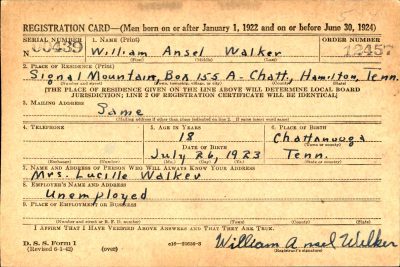 REGISTRATION CARD—(Men born on or after January 1, 1922 and on or before June 30, 1924)
SERIAL NUMBER 1. NAME (Print) ORDER NUMBER
N William Ansel Walker 12457
(First) (Middle) (Last)
2. PLACE OF RESIDENCE (Print)
Signal Mountain, Box 155 A- Chatt, Hamilton, Tenn.
(Number and street) (Town, township, village, or city) (County) (State)
[THE PLACE OF RESIDENCE GIVEN ON THE LINE ABOVE WILL DETERMINE LOCAL BOARD
JURISDICTION; LINE 2 OF REGISTRATION CERTIFICATE WILL BE IDENTICAL]
3. MAILING ADDRESS
Same
[Mailing address if other than place indicated on line 2. If same insert word same]
4. TELEPHONE 5. AGE IN YEARS 6. PLACE OF BIRTH
18 Chattanooga
DATE OF BIRTH (Town or county)
July 26, 1923 Tenn.
(Exchange) (Number) (Mo.) (Day) (Yr.) (State or country)
7. NAME AND ADDRESS OF PERSON WHO WILL ALWAYS KNOW YOUR ADDRESS
Mrs. Lucille Walker
8. EMPLOYER'S NAME AND ADDRESS
Unemployed
9. PLACE OF EMPLOYMENT OR BUSINESS
(Number and street or R. F. D. number) (Town) (County) (State)
I AFFIRM THAT I HAVE VERIFIED ABOVE ANSWERS AND THAT THEY ARE TRUE.
D. S. S. Form 1
(Revised 6-1-42) (over) William Ansel Walker
(Registrant's signature)